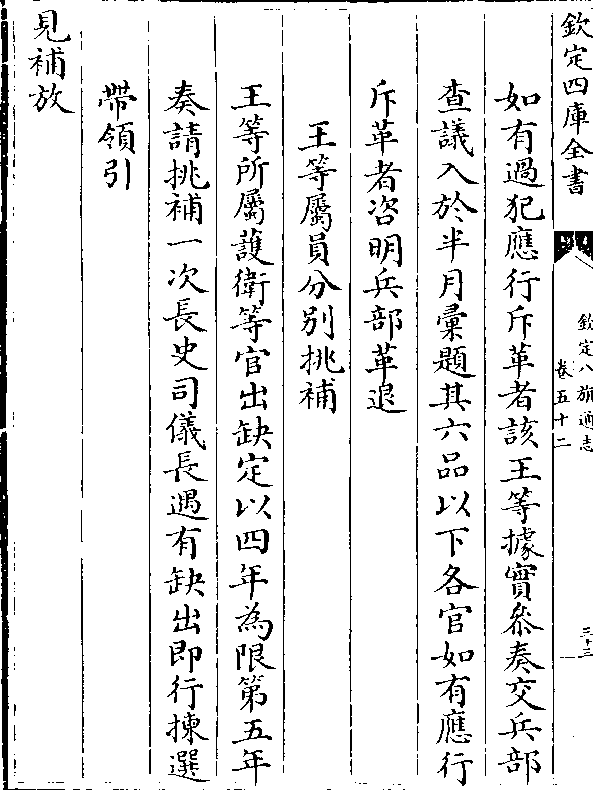 欽定四庫全書
欽定八旗通志
卷五十二
三十三
如有過犯應行斥革者該王等據實叅奏交兵部
查議入於半月彙題其六品以下各官如有應行
斥革者咨明兵部革退
王等屬員分別挑補
王等所屬護衛等官出缺定以四年為限第五年
奏請挑補一次長史司儀長遇有缺出即行揀選
帶領引
見補放